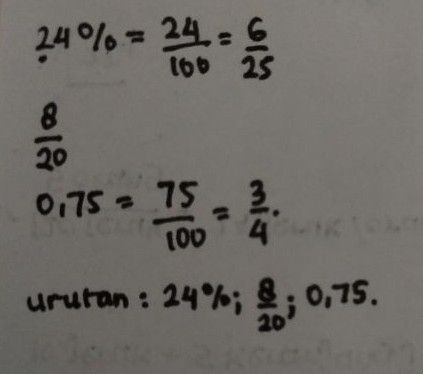 24% = 24/100 = 6/25
8/20
0,75 = 75/100 = 3/4.
urutan : 24%; 8/20; 0,75.